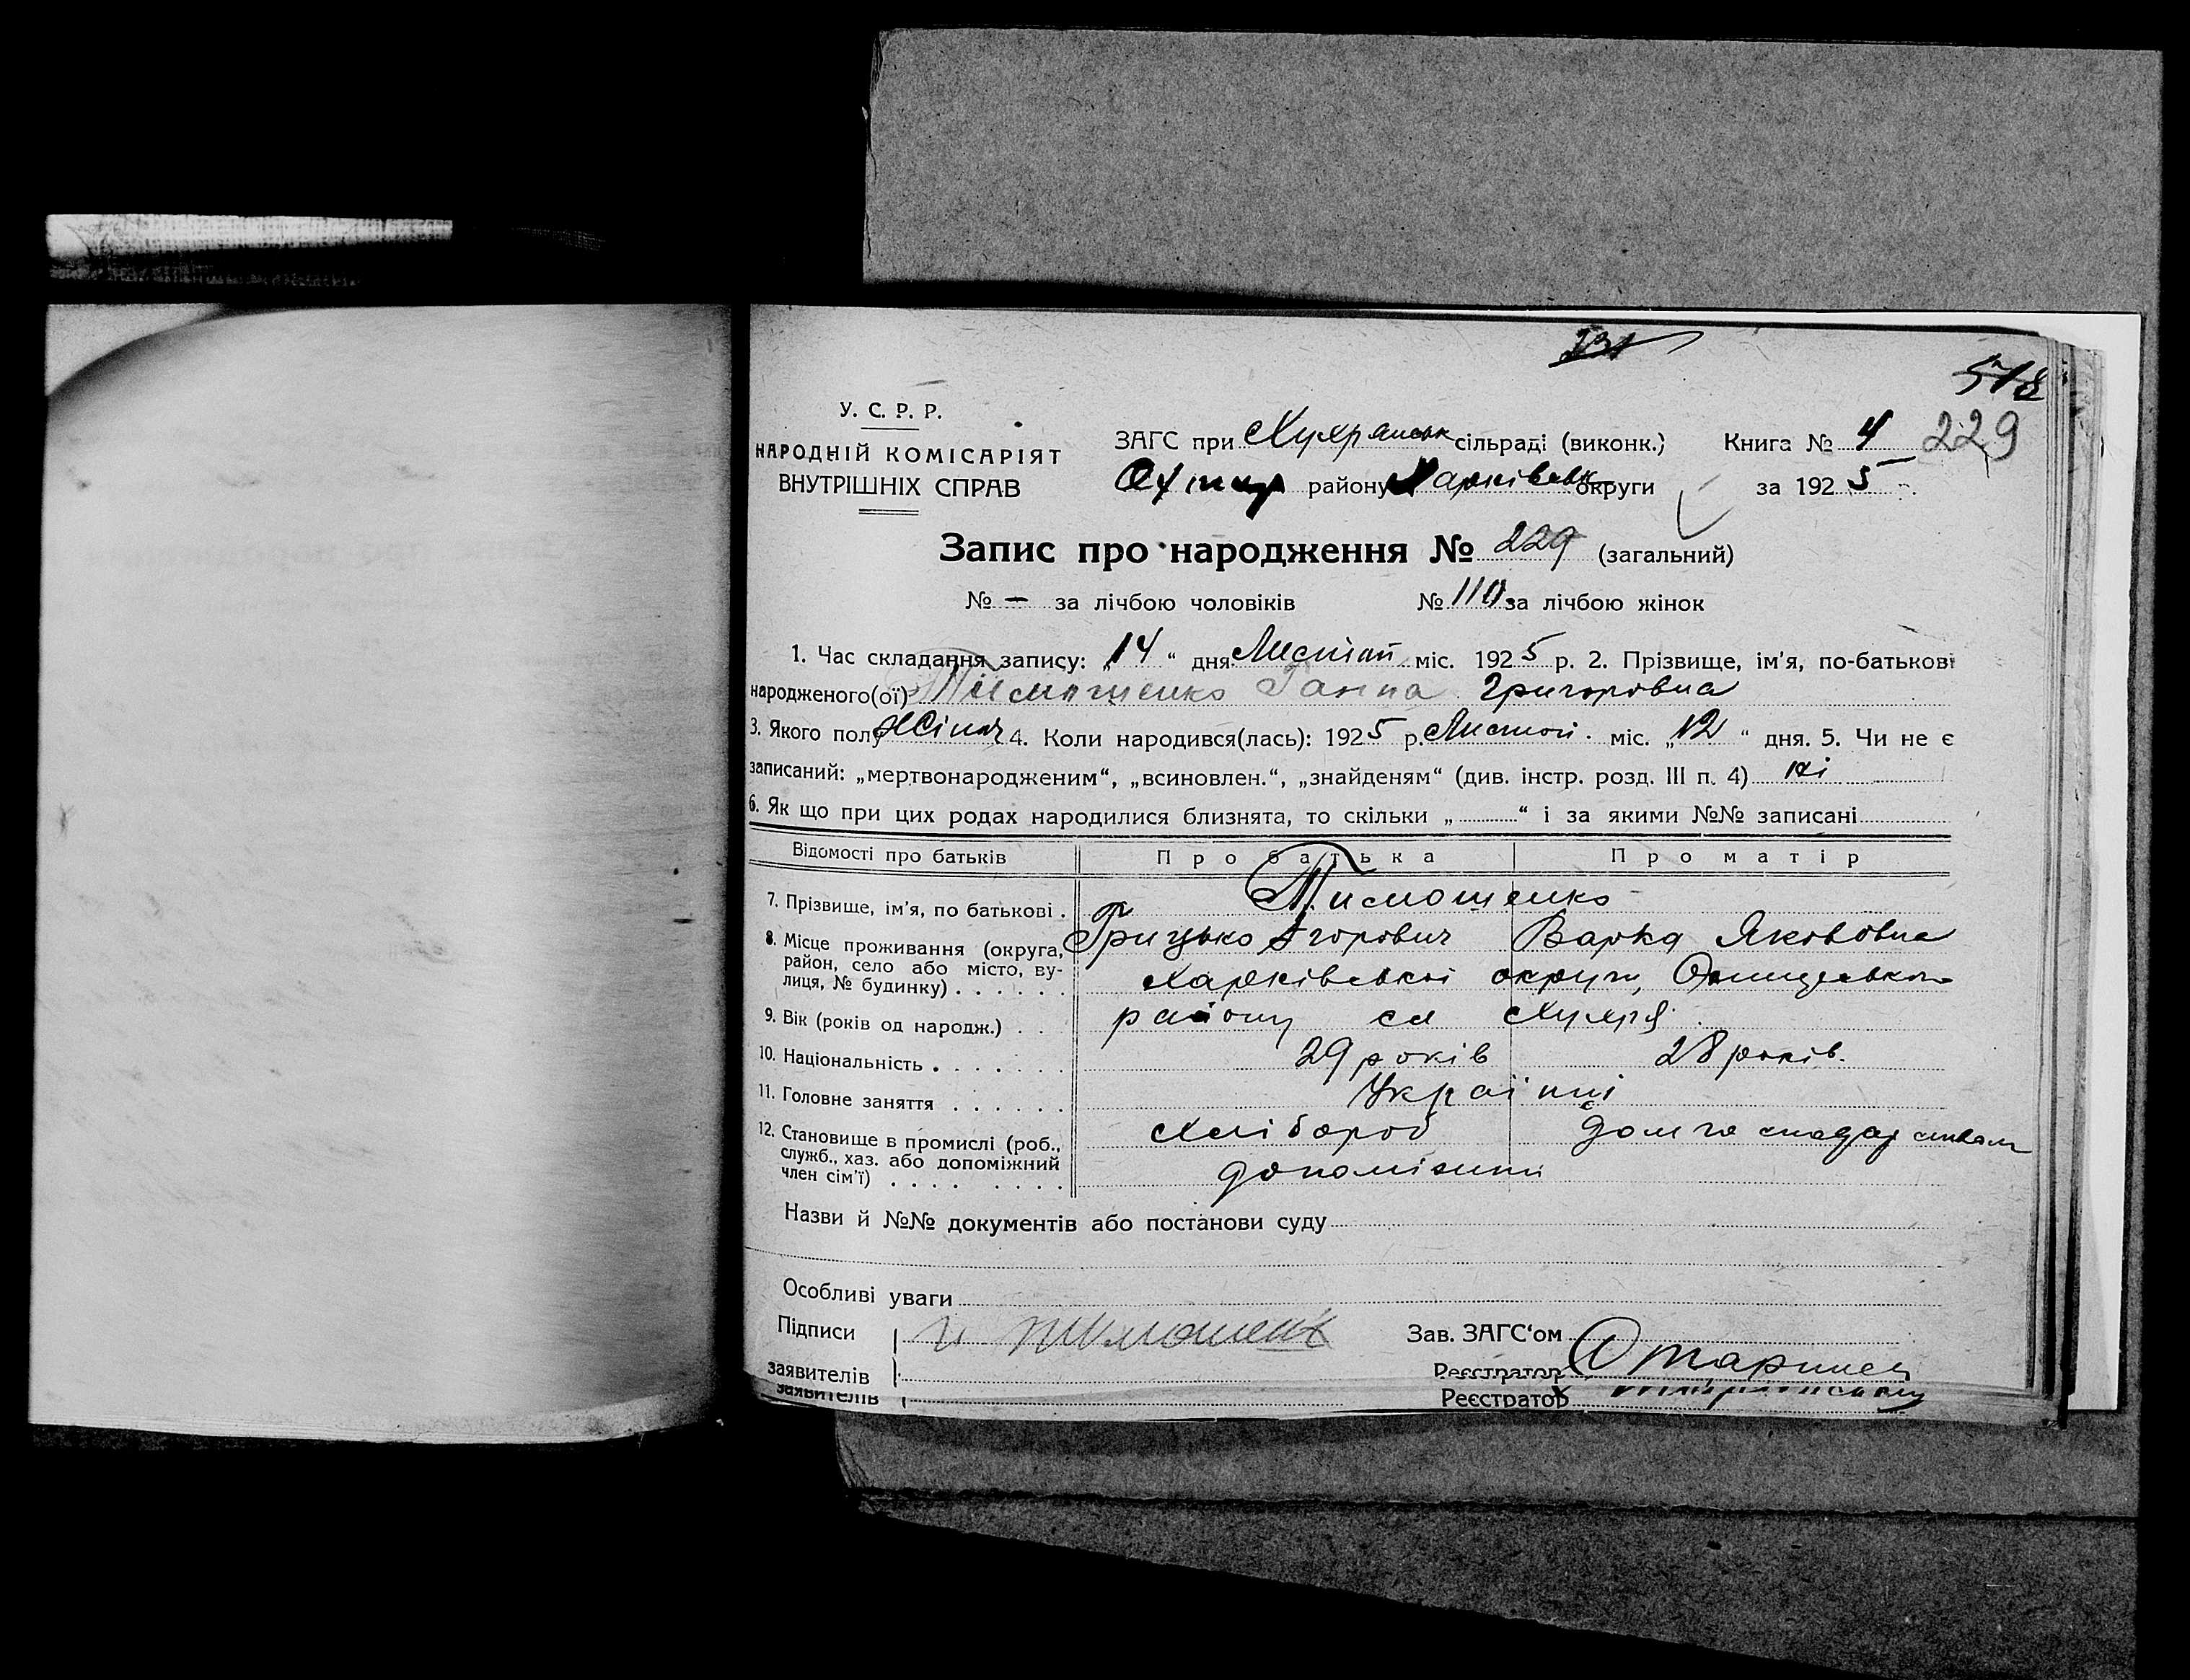 518
У. С. Р. Р.
НАРОДНІЙ КОМІСАРІЯТ
ВНУТРІШНІХ СПРАВ
ЗАГС при Хухрянськ сільраді (виконк.) Книга № 4 229
Охтир району Харківськ округи за 1925 р.
Запис про народження № 229 (загальний)
№ — за лічбою чоловіків № 110 за лічбою жінок
1. Час складання запису: „14“ дня Листоп міс. 1925 р. 2. Прізвище, ім'я, по-батькові
народженого(ої) Тимошенко Ганна Григоровна
3. Якого полу Жіноч 4. Коли народився(лась): 1925 р. Листоп. міс. „12“ дня. 5. Чи не є
записаний: „мертвонародженим“, „всиновлен.“, „знайденям“ (див. інстр. розд. III п. 4) ні
6. Як що при цих родах народилися близнята, то скільки „..........“ і за якими №№ записані
Відомості про батьків Про батька Про матір
7. Прізвище, ім'я, по батькові . Тимошенко
Грицько Ігорович Варка Якововна
8. Місце проживання (округа,
район, село або місто, ву-
лиця, № будинку) . . . . . .
Харківської округи,
району сл Хухря
9. Вік (років од народж.) . . 29 років 28 років.
10. Національність . . . . . . . Українці
11. Головне заняття . . . . . . Хлібороб
12. Становище в промислі (роб.,
служб., хаз. або допоміжний
член сім'ї) . . . . . . . .
Назви й №№ документів або постанови суду
Особливі уваги
Підписи Тимошенк Зав. ЗАГС'ом
заявителів Реєстратор
заявителів Реєстратор